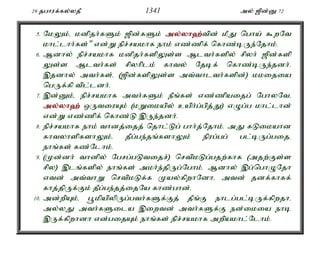 29 தபாரக்கல்லதீ 1341 அல் ஜின்னு 72
5. மேலும், மனிதர்களும் ஜின்களும் அல்லாஹ்வின் மீது பொய் கூறவே
மாட்டார்கள்" என்று நிச்சயமாக நாம் எண்ணிக் கொண்டிருந்தோம்.
6. ஆனால் நிச்சயமாக மனிதர்களிலுள்ள ஆடவர்களில் சிலர் ஜின்களி
லுள்ள ஆடவர்கள் சிலரிடம் காவல் தேடிக் கொண்டிருந்தனர்.
இதனால் அவர்கள், (ஜின்களிலுள்ள அவ்வாடவர்களின்) மமதையை
பெருக்கி விட்டனர்.
7. இன்னும், நிச்சயமாக அவர்களும் நீங்கள் எண்ணியதைப் போலவே,
அல்லாஹ் ஒருவரையும் (மறுமையில் உயிர்ப்பித்து) எழுப்ப மாட்டான்
என்று எண்ணிக் கொண்டு இருந்தனர்.
8. நிச்சயமாக நாம் வானத்தைத் தொட்டுப் பார்த்தோம். அது கடுமையான
காவலாளிகளாலும், தீப்பந்தங்களாலும் நிரப்பப் பட்டிருப்பதை,
நாங்கள் கண்டோம்.
9. (முன்னர் வானில் பேசப்படுவதைச்) செவிமடுப்பதற்காக (அதற்குள்ள
சில) இடங்களில் நாங்கள் அமர்ந்திருப்போம். ஆனால் இப்பொழுதோ
எவன் அவ்வாறு செவிமடுக்க முயல்கிறானோ, அவன் தனக்காகக்
காத்திருக்கும் தீப்பந்தத்தையே காண்பான்.
10. அன்றியும், பூமியிலிருப்பவர்களுக்குத் தீங்கு நாடப்பட்டிருக்கிறதா,
அல்லது அவர்களுடைய இறைவன் அவர்களுக்கு நன்மையை நாடி
இருக்கிறானா என்பதையும் நாங்கள் நிச்சயமாக அறியமாட்டோம்.